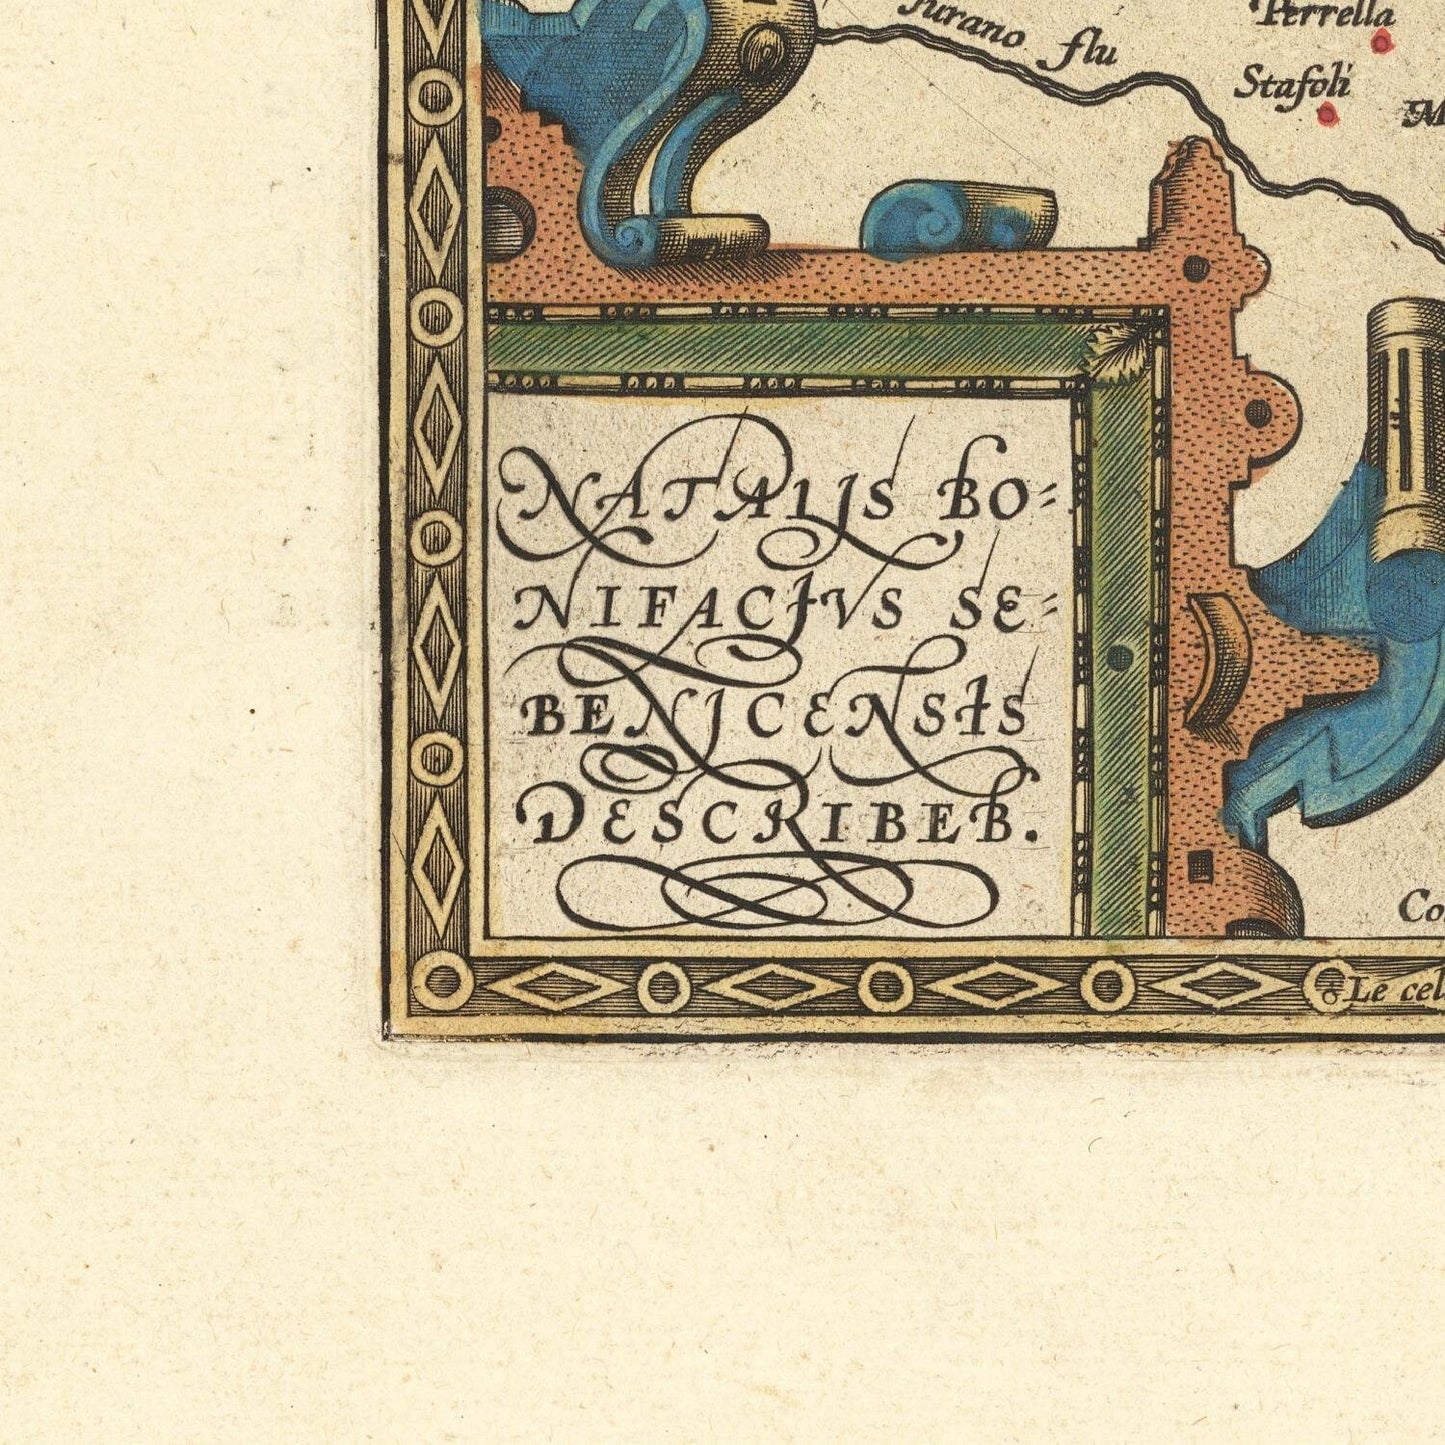 Turano flu
Perrella
Stafoli
NATALIS BO=
NIFACIVS SE=
BENICENSIS
DESCRIBEB.
Le cel